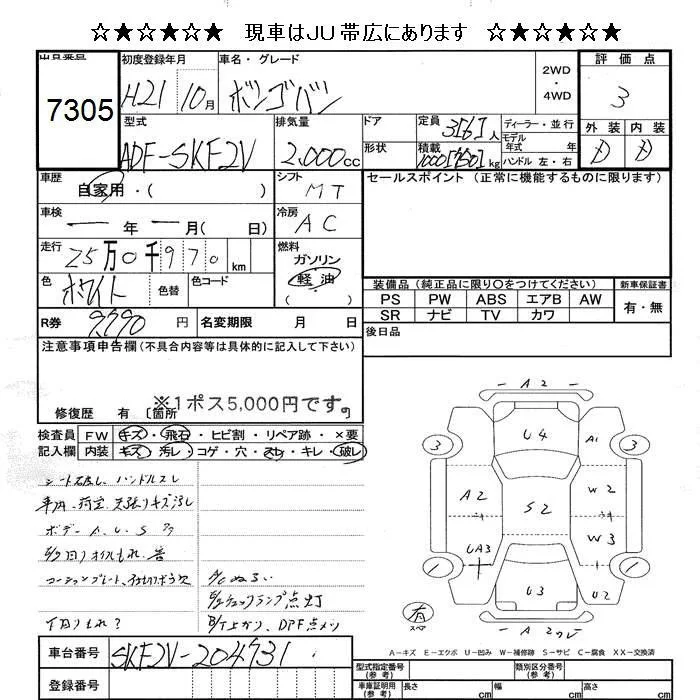 ☆★☆★☆★ 現車はJU帯広にあります ☆★☆★☆★
出品番号 初度登録年月 車名・グレード 2WD・4WD 評価点
7305 H21 10月 ボンゴバン 3
型式 排気量 ドア 定員 3[6]人 ディーラー・並行 外装 内装
ADF-SKF2V 2.000cc 形状 積載 1000[750]kg モデル年式 年式 D D
ハンドル 左・右
車歴 自家用・( ) シフト MT セールスポイント (正常に機能するものに限ります)
車検 ー年ー月( 日) 冷房 AC
走行 25万0千970km 燃料 ガソリン 軽油 ( )
色 ホワイト 色替 色コード 装備品 (純正品に限り○をつけてください) 新車保証書
PS PW ABS エアB AW 有・無
R券 9990円 名変期限 月 日 SR ナビ TV カワ
注意事項申告欄(不具合内容等は具体的に記入して下さい) 後日品
※1ポス5,000円です。
修復歴 有 [箇所
検査員 FW キズ・飛石・ヒビ割・リペア跡・×要
記入欄 内装 キズ・汚レ・コゲ・穴・スレ・キレ・破レ
シート破レ、ハンドルスレ
内、荷室、天張りキズ汚レ
ボデー A.U.S
回りオイルもれ
コーションプレート
A/Cぬるい
チェックランプ点灯
下回りもれ? DPF点メツ
A2
3 U4 A1 3
A2 S2 W2
UA3 W3
1 U3 U2 1
有 スペア A2
A-キズ E-エクボ U-凹み W-補修跡 S-サビ C-腐食 XX-交換済
車台番号 SKF2V-204731
登録番号
型式指定番号(参考) 類別区分番号(参考)
車庫証明用(参考) 長さ cm 幅 cm 高さ cm